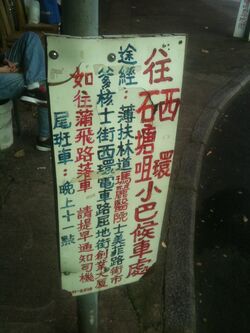 往西環
石塘咀小巴候車處
途經：薄扶林道瑪麗醫院士美菲路街市
爹核士街西環電車路屈地街創業大廈
如往蒲飛路落車 請提早通知司機
尾班車：晚上十一點